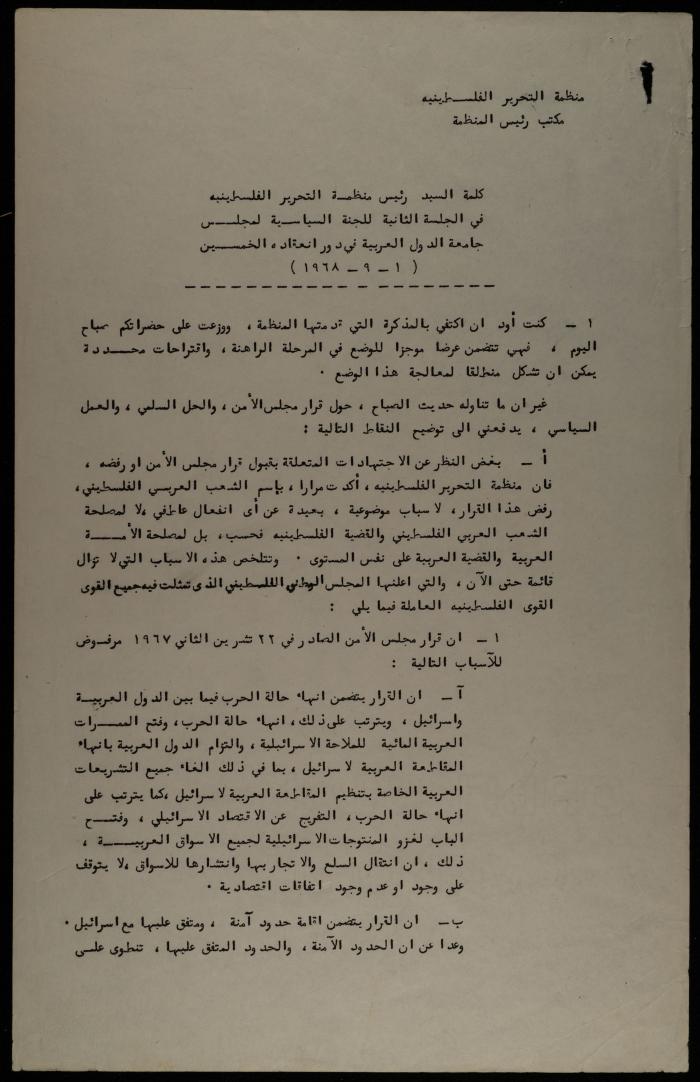 منظمة التحرير الفلسطينيه
مكتب رئيس المنظمة
كلمة السيد رئيس منظمة التحرير الفلسطينيه
في الجلسة الثانية للجنة السياسية لمجلس
جامعة الدول العربية في دور انعقاده الخمسين
( ١ ـ ٩ ـ ١٩٦٨ )
١ ـ كنت أود ان اكتفي بالمذكرة التي قدمتها المنظمة ، ووزعت على حضراتكم صباح
اليوم ، فهي تتضمن عرضا موجزا للوضع في المرحلة الراهنة ، واقتراحات محددة
يمكن ان تشكل منطلقا لمعالجة هذا الوضع .
غير ان ما تناوله حديث الصباح ، حول قرار مجلس الأمن ، والحل السلمي ، والعمل
السياسي ، يدفعني الى توضيح النقاط التالية :
أ ـ بغض النظر عن الاجتهادات المتعلقة بقبول قرار مجلس الأمن او رفضه ،
فان منظمة التحرير الفلسطينيه ، أكدت مرارا ، بإسم الشعب العربي الفلسطيني ،
رفض هذا القرار ، لاسباب موضوعية ، بعيدة عن أى انفعال عاطفي ، لا لمصلحة
الشعب العربي الفلسطيني والقضية الفلسطينيه فحسب ، بل لمصلحة الأمة
العربية والقضية العربية على نفس المستوى . وتتلخص هذه الاسباب التي لا تزال
قائمة حتى الآن ، والتي اعلنها المجلس الوطني الفلسطيني الذى تمثلت فيه جميع القوى
القوى الفلسطينيه العاملة فيما يلي :
١ ـ ان قرار مجلس الأمن الصادر في ٢٢ تشرين الثاني ١٩٦٧ مرفوض
للأسباب التالية :
آ ـ ان القرار يتضمن انهاء حالة الحرب فيما بين الدول العربية
واسرائيل ، ويترتب على ذلك ، انهاء حالة الحرب ، وفتح الممرات
العربية المائية للملاحة الاسرائيلية ، والتزام الدول العربية بانهاء
المقاطعة العربية لاسرائيل ، بما في ذلك الغاء جميع التشريعات
العربية الخاصة بتنظيم المقاطعة العربية لاسرائيل ، كما يترتب على
انهاء حالة الحرب ، التفريج عن الاقتصاد الاسرائيلي ، وفتح
الباب لغزو المنتوجات الاسرائيلية لجميع الاسواق العربية ،
ذلك ، ان انتقال السلع والاتجار بها وانتشارها للاسواق ، لا يتوقف
على وجود او عدم وجود اتفاقات اقتصادية .
ب ـ ان القرار يتضمن اقامة حدود آمنة ، ومتفق عليها مع اسرائيل .
وعدا عن ان الحدود الآمنة ، والحدود المتفق عليها ، تنطوى على